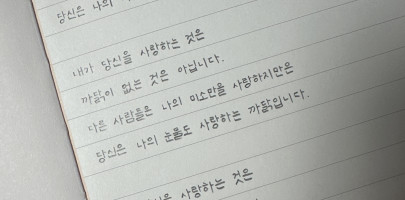 당신은 나의
내가 당신을 사랑하는 것은
까닭이 없는 것은 아닙니다.
다른 사람들은 나의 미소만을 사랑하지만은
당신은 나의 눈물도 사랑하는 까닭입니다.
사랑하는 것은